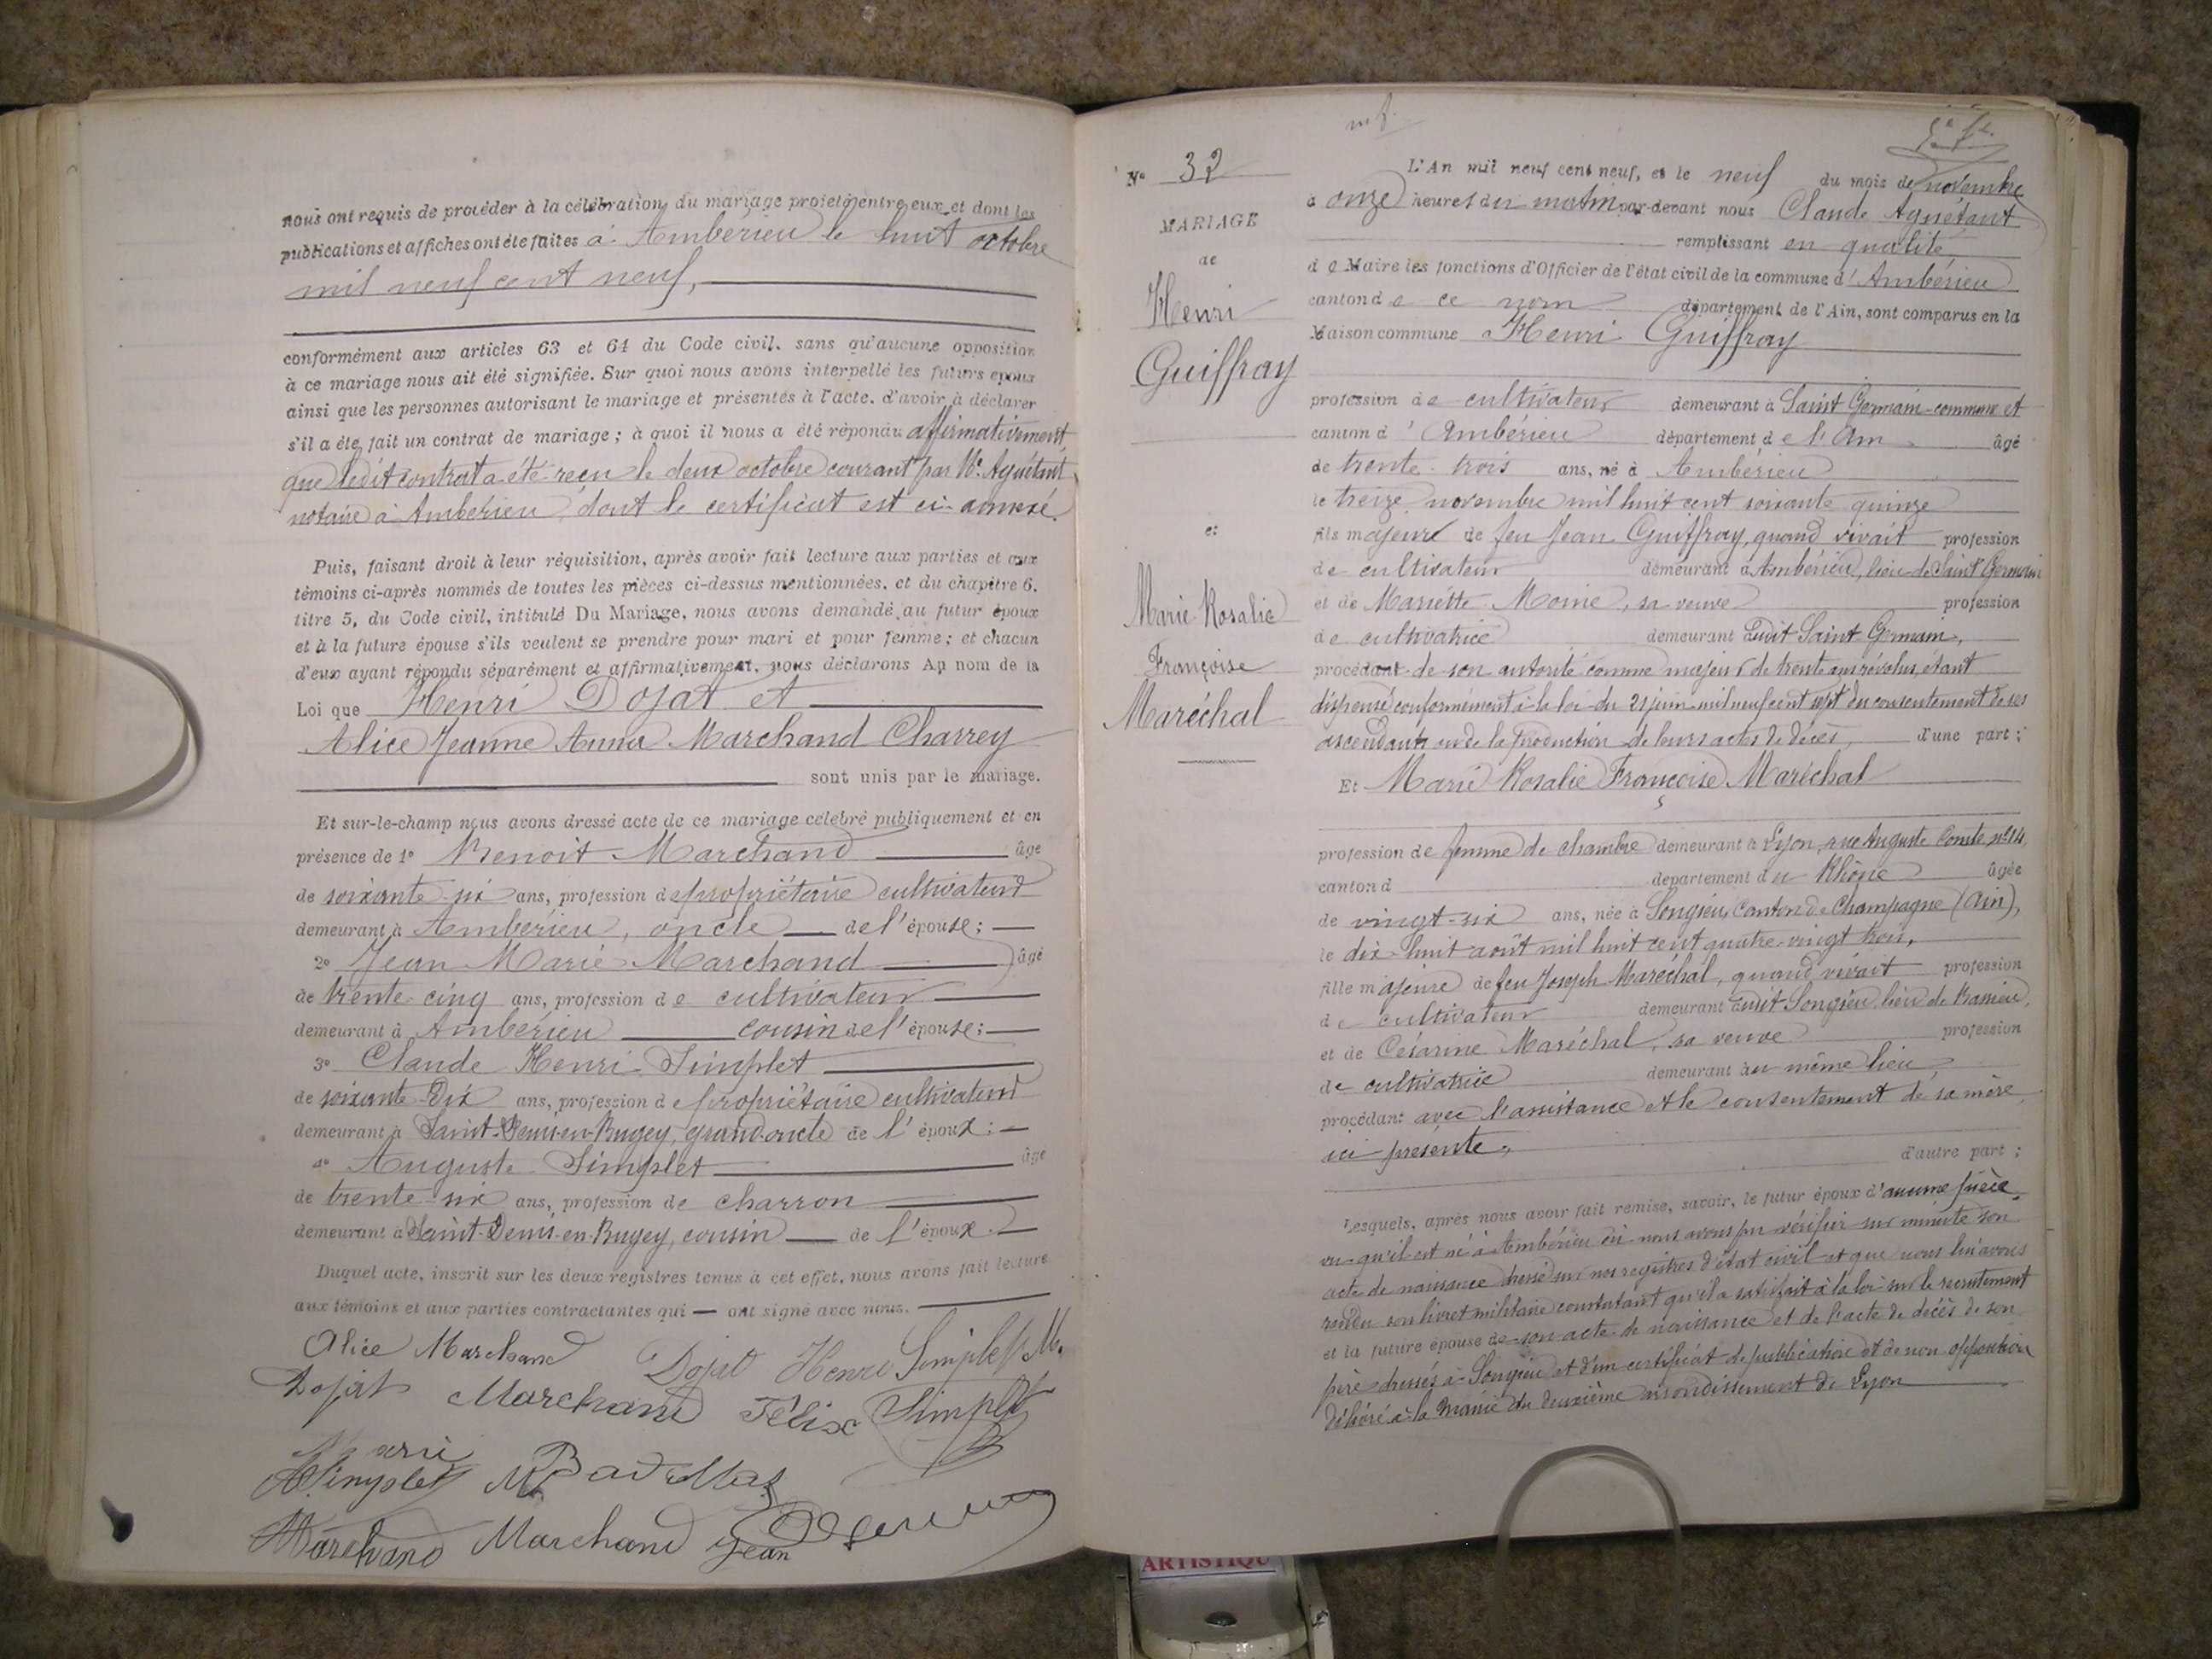 nous ont requis de procéder à la célébration du mariage projeté entre eux et dont les
publications et affiches ont été faites à Ambérieu le huit octobre
mil neuf cent neuf,
conformément aux articles 63 et 64 du Code civil, sans qu'aucune opposition
à ce mariage nous ait été signifiée. Sur quoi nous avons interpellé les futurs epoux
ainsi que les personnes autorisant le mariage et présentes à l'acte, d'avoir à déclarer
s'il a été fait un contrat de mariage ; à quoi il nous a été répondu affirmativement
que ledit contrat a été reçu le deux octobre courant par Me Aguétant,
notaire à Ambérieu, dont le certificat est ci-annexé.
Puis, faisant droit à leur réquisition, après avoir fait lecture aux parties et aux
témoins ci-après nommés de toutes les pièces ci-dessus mentionnées, et du chapitre 6,
titre 5, du Code civil, intitulé Du Mariage, nous avons demandé au futur époux
et à la future épouse s'ils veulent se prendre pour mari et pour femme ; et chacun
d'eux ayant répondu séparément et affirmativement, nous déclarons Au nom de la
Loi que Henri Dojat et
Alice Jeanne Anna Marchand Charrey
sont unis par le mariage.
Et sur-le-champ nous avons dressé acte de ce mariage célébré publiquement et en
présence de 1° Benoit Marchand âgé
de soixante-six ans, profession de propriétaire cultivateur
demeurant à Ambérieu, oncle de l'épouse ;
2° Jean Marie Marchand âgé
de trente-cinq ans, profession de cultivateur
demeurant à Ambérieu cousin de l'épouse ;
3° Claude Henri Simplet
de soixante-dix ans, profession de propriétaire cultivateur
demeurant à Saint-Denis-en-Bugey, grand-oncle de l'époux ;
4° Auguste Simplet âgé
de trente-six ans, profession de charron
demeurant à Saint-Denis-en-Bugey, cousin de l'époux.
Duquel acte, inscrit sur les deux registres tenus à cet effet, nous avons fait lecture
aux témoins et aux parties contractantes qui ont signé avec nous.
Alice Marchand Dojat Henri Simplet M.
Dojat Marchand Félix Simplet
Marie
A Simplet
Marchand Marchand Jean
N° 32
MARIAGE
de
Henri
Guiffray
et
Marie Rosalie
Françoise
Maréchal
L'An mil neuf cent neuf, et le neuf du mois de novembre
à onze heures du matin par-devant nous Claude Aguétant
remplissant en qualité
de Maire les fonctions d'Officier de l'état civil de la commune d'Ambérieu
canton de ce nom département de l'Ain, sont comparus en la
Maison commune Henri Guiffray
profession de cultivateur demeurant à Saint Germain-commune et
canton d'Ambérieu département de l'Ain âgé
de trente-trois ans, né à Ambérieu
le treize novembre mil huit cent soixante quinze
fils majeur de feu Jean Guiffray, quand vivait profession
de cultivateur demeurant à Ambérieu, lieu de Saint Germain
et de Mariette Moine, sa veuve profession
de cultivatrice demeurant audit Saint Germain,
procédant de son autorité comme majeur de trente ans révolus, étant
dispensé conformément à la loi du 21 juin mil neuf cent sept du consentement de ses
ascendants ou de la production de leurs actes de décès, d'une part ;
Et Marie Rosalie Françoise Maréchal
profession de femme de chambre demeurant à Lyon, rue Auguste Comte, n° 14
canton d département du Rhône âgée
de vingt-six ans, née à Songieu, canton de Champagne (Ain),
le dix-huit août mil huit cent quatre-vingt trois,
fille majeure de feu Joseph Maréchal, quand vivait profession
de cultivateur demeurant audit Songieu, lieu de Bassieu,
et de Césarine Maréchal, sa veuve profession
de cultivatrice demeurant au même lieu
procédant avec l'assistance et le consentement de sa mère,
ici présente, d'autre part ;
Lesquels, après nous avoir fait remise, savoir, le futur époux d'aucune pièce,
vu qu'il est né à Ambérieu où nous avons pu vérifier sur minute son
acte de naissance dressé sur nos registres d'état civil et que nous lui avons
rendu son livret militaire constatant qu'il a satisfait à la loi sur le recrutement
et la future épouse de son acte de naissance et de l'acte de décès de son
père dressés à Songieu et d'un certificat de publication et de non opposition
délivré à la mairie du deuxième arrondissement de Lyon